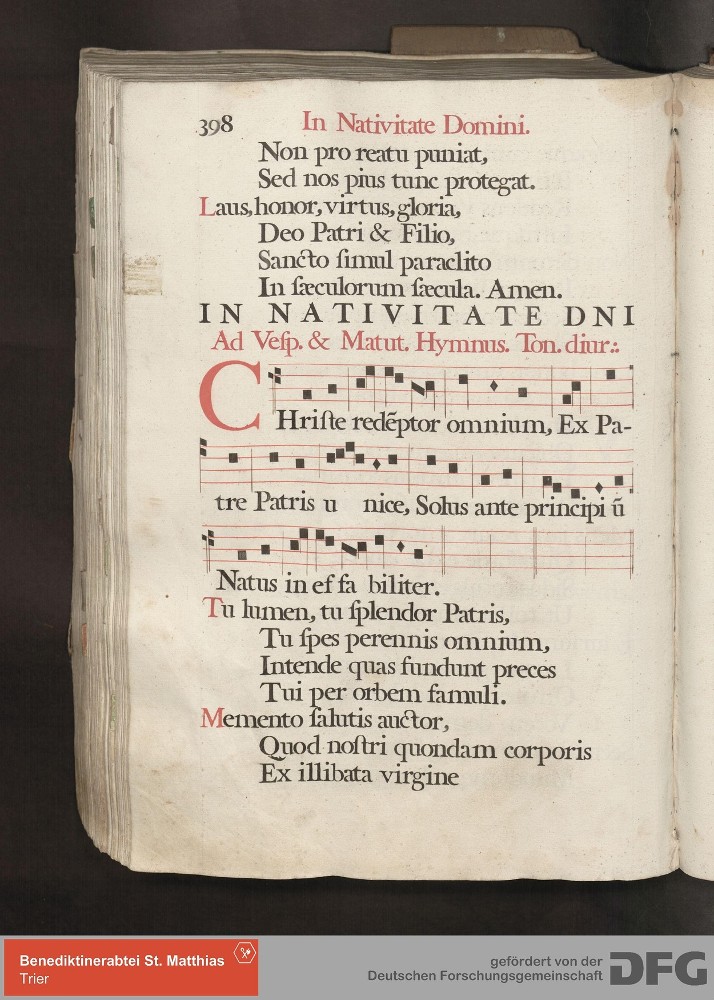 398 In Nativitate Domini.
Non pro reatu puniat,
Sed nos pius tunc protegat.
Laus, honor, virtus, gloria,
Deo Patri & Filio,
Sancto ſimul paraclito
In ſæculorum ſæcula. Amen.
IN NATIVITATE DNI
Ad Veſp. & Matut. Hymnus. Ton. diur.:
CHriſte redẽptor omnium, Ex Pa-
tre Patris u nice, Solus ante principi ũ
Natus in ef fa biliter.
Tu lumen, tu ſplendor Patris,
Tu ſpes perennis omnium,
Intende quas fundunt preces
Tui per orbem famuli.
Memento ſalutis auctor,
Quod noſtri quondam corporis
Ex illibata virgine
Benediktinerabtei St. Matthias
Trier
gefördert von der
Deutschen Forschungsgemeinschaft DFG